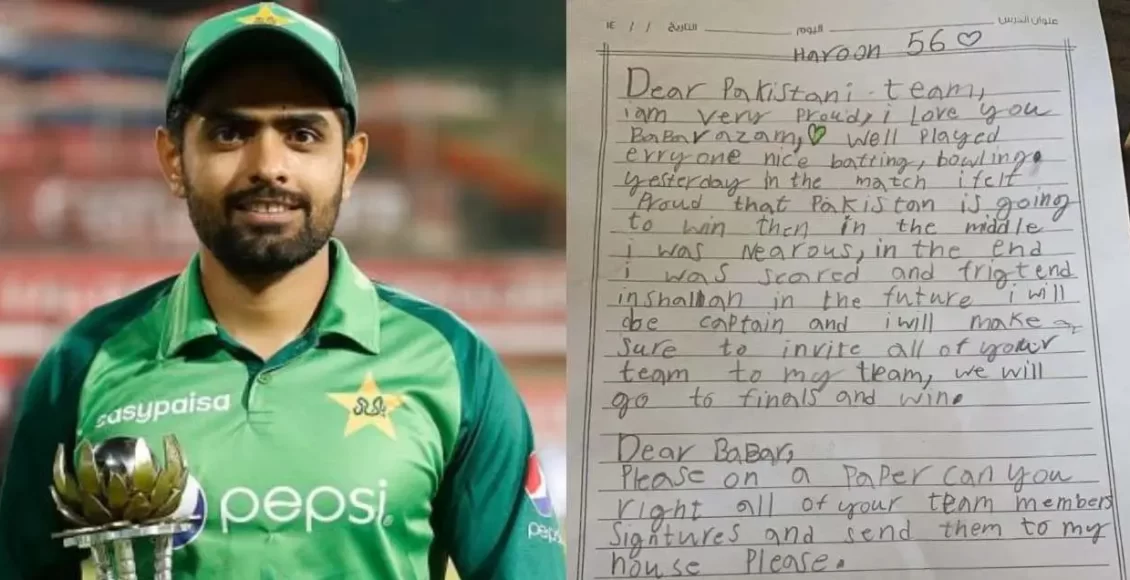 easypaisa
pepsi
pepsi
عنوان الدرس
اليوم
التاريخ / / ١٤
Haroon 56
Dear Pakistani team,
iam very Proud, i Love you
BaBarazam, well Played
erryone nice batting, bowling.
yesterday in the match ifelt
Proud that Pakistan is going
to win then in the middle
i was nearous, in the end
i was scared and frigtend
inshallah in the future i will
be captain and i will make
Sure to invite all of your
team to my team, we will
go to finals and win.
Dear BaBar,
Please on a Paper can you
right all of your team members
Signtures and send them to my
house Please.